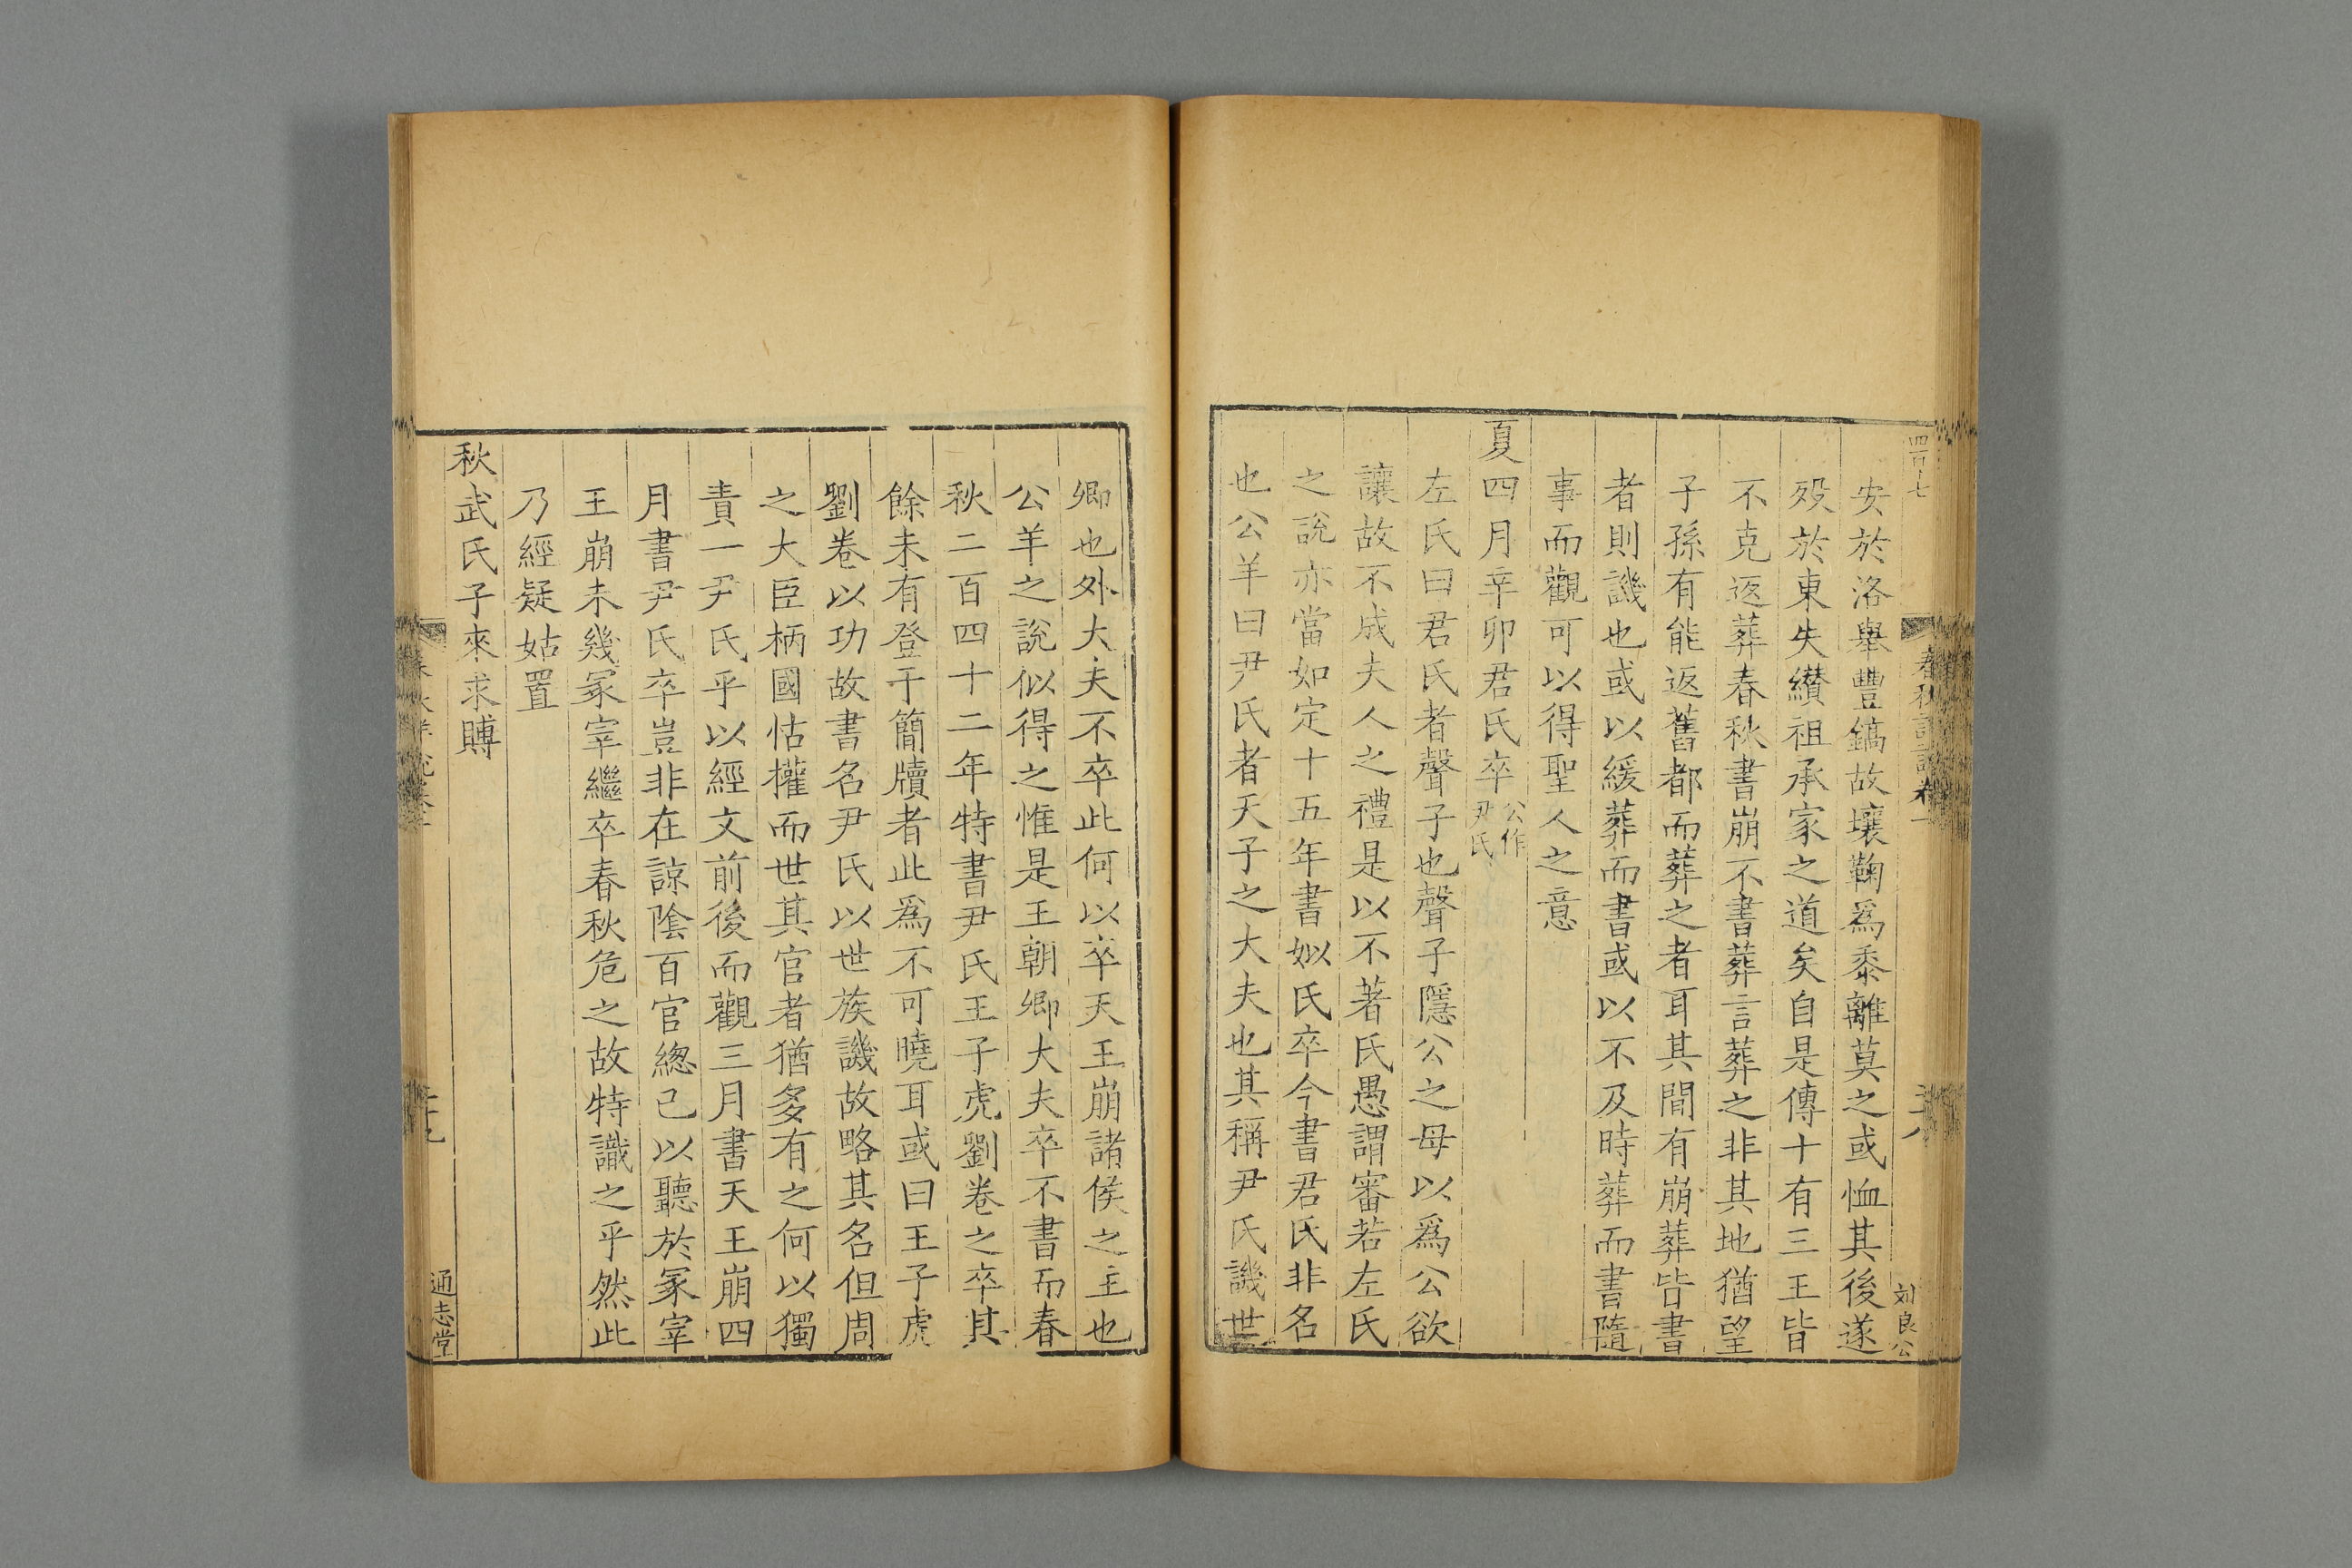 四百七
安於洛舉豐鎬故壤鞠爲黍離莫之或恤其後遂
歿於東失纉祖承家之道矣自是傳十有三王皆
不克返葬春秋書崩不書葬言葬之非其地猶望
子孫有能返舊都而葬之者耳其間有崩葬皆書
者則譏也或以緩葬而書或以不及時葬而書隨
事而觀可以得聖人之意
夏四月辛卯君氏卒公作尹氏
左氏曰君氏者聲子也聲子隱公之母以爲公欲
讓故不成夫人之禮是以不著氏愚謂審若左氏
之說亦當如定十五年書姒氏卒今書君氏非名
也公羊曰尹氏者天子之大夫也其稱尹氏譏世
卿也外大夫不卒此何以卒天王崩諸侯之主也
公羊之說似得之惟是王朝卿大夫卒不書而春
秋二百四十二年特書尹氏王子虎劉卷之卒其
餘未有登于簡牘者此爲不可曉耳或曰王子虎
劉卷以功故書名尹氏以世族譏故略其名但周
之大臣柄國怙權而世其官者猶多有之何以獨
責一尹氏乎以經文前後而觀三月書天王崩四
月書尹氏卒豈非在諒陰百官總己以聽於冢宰
王崩未幾冢宰繼卒春秋危之故特識之乎然此
乃經疑姑置
秋武氏子來求賻
通志堂